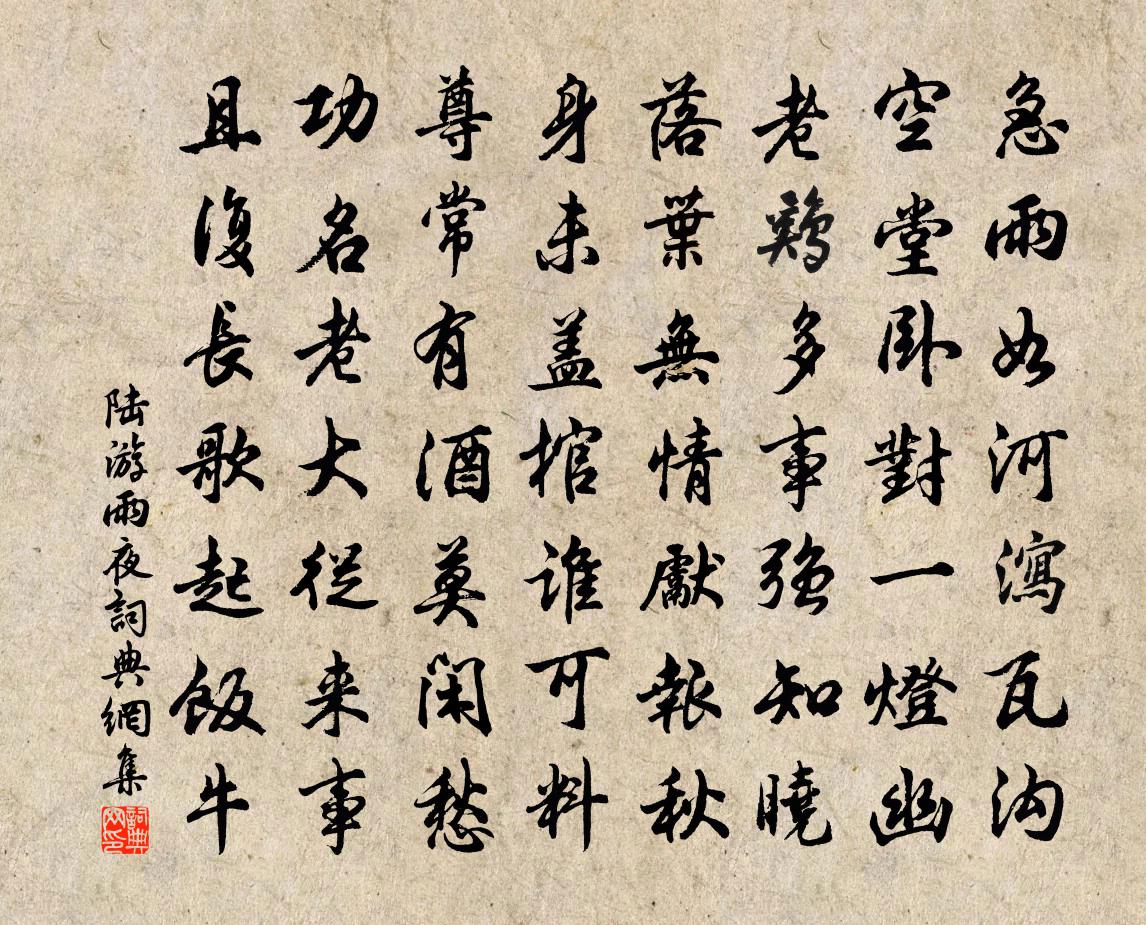 急雨如河瀉瓦沟
空堂卧對一燈幽
老鷄多事强知曉
落葉無情獻報秋
身未盖棺誰可料
尊常有酒莫閑愁
功名老大從来事
且復長歌起飯牛
陆游雨夜詞典網集
詞典网印